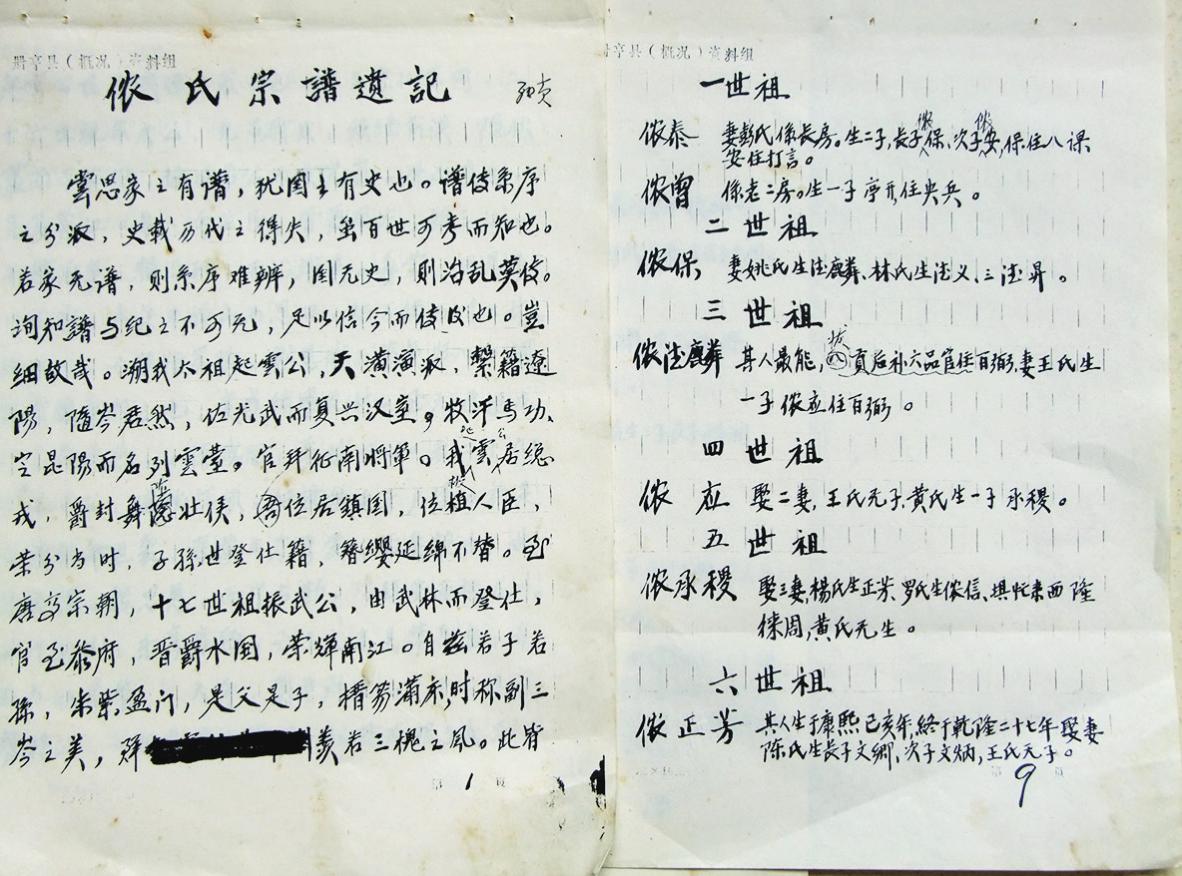 册亨县（概况）资料组
侬氏宗譜遺記
雲思家之有谱，犹国之有史也。谱
之分派，史载历代之得失，虽百世可考而知也。
若家无谱，则系序难辨，国无史，则治乱莫
询知譜与纪之不可无，足以信今而 也。豈
细故哉。溯我太祖起雲公，天潢演派，繫籍遼
陽，隨岑君然，佐光武而复兴汉室。牧 马功，
昆陽而名列雲臺。官拜征南將軍。我起雲公居總
戎，爵封舞陰壮侯， 位居鎮国，位极人臣，
荣 当时，子孫世登仕籍，簪纓延绵不替。至
唐 宗朝，十七世祖振武公，由武林而登仕，
官至 府，晋爵水国，荣輝南江。自兹若子若
孫，朱紫盈门，是父是子，搢笏滿床，时称副三
岑之美，群 羡若三槐之风。此皆
第 1 页
册亨县（概况）资料组
一世祖
侬泰 妻彭氏係長房。生二子，長子侬保、次子侬安，保住八课
安住打言。
侬曾 係老二房。生一子序 住央兵。
二世祖
侬保， 妻姚氏生法麟、林氏生法义、三法昇。
三世祖
侬法麟 其人最能，拔 貢后补六品官住百弼，妻王氏生
一子侬应住百弼。
四世祖
侬应 娶二妻，王氏无子，黄氏生一子承稷。
五世祖
侬承稷 娶三妻，楊氏生正芳、罗氏生侬信、 隆
徕周，黄氏无生。
六世祖
侬正芳 其人生于康熙己亥年，終于乾隆二十七年娶妻
陈氏生長子文卿、次子文炳，王氏无子。
第 9